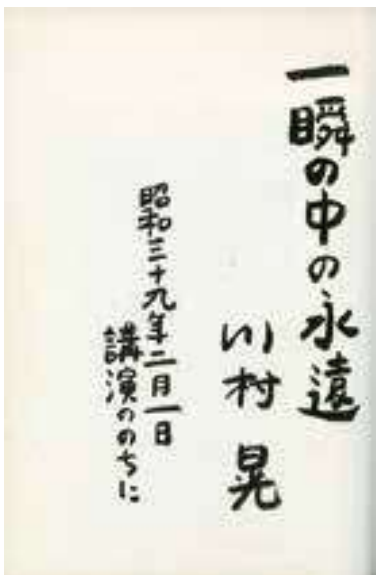 一瞬の中の永遠
川村 晃
昭和三十九年二月一日
講演ののちに